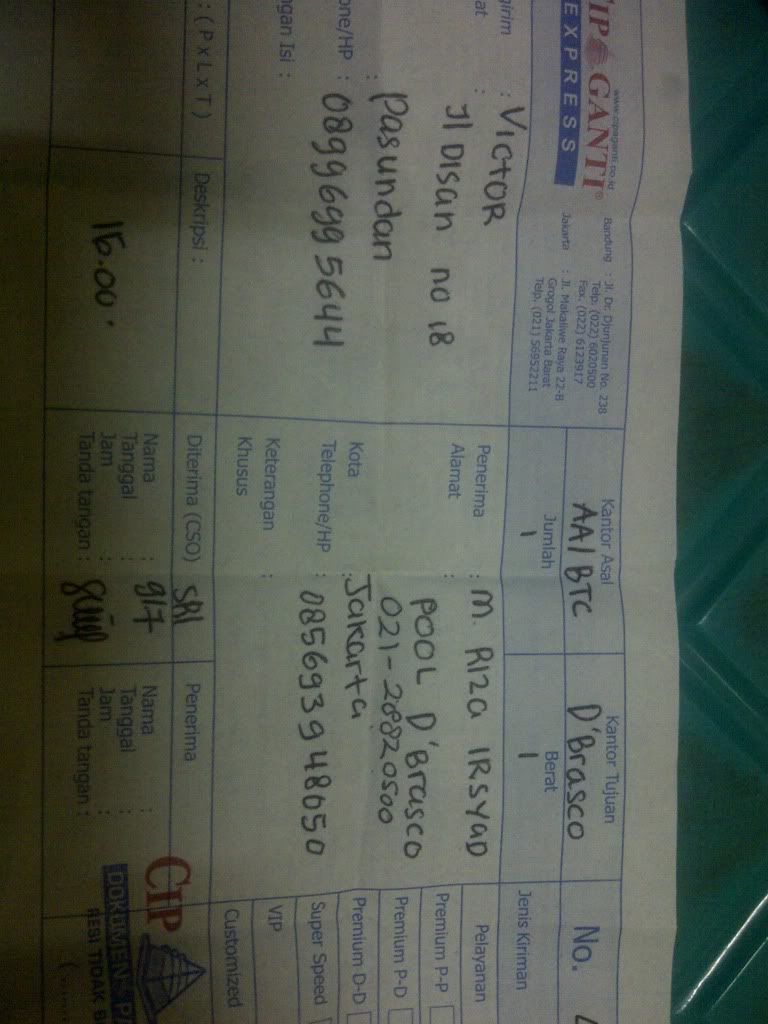 www.cipaganti.co.id
CIPAGANTI®
EXPRESS
Bandung : Jl. Dr. Djunjunan No. 238
Telp. (022) 6020500
Fax. (022) 6123917
Jakarta : Jl. Makaliwe Raya 22-B
Grogol Jakarta Barat
Telp. (021) 56952211
Kantor Asal
AA/BTC
Kantor Tujuan
D'Brasco
No.
Jumlah
1
Berat
1
Jenis Kiriman
girim : VICTOR
at : Jl Disan no 18
: Pasundan
one/HP : 0899 699 5644
ngan Isi :
Penerima : M. RIZA IRSYAD
Alamat : POOL D'Brasco
021-28820500
Kota : Jakarta
Telephone/HP : 085693948050
Keterangan :
Khusus
Pelayanan
Premium P-P
Premium P-D
Premium D-D
Super Speed
VIP
Customized
: ( P x L x T )
Deskripsi :
Diterima (CSO) SRI
Nama :
Tanggal : 9/7
Jam :
Tanda tangan :
Penerima
Nama :
Tanggal :
Jam :
Tanda tangan :
CIP
DOKUMEN - P
RESI TIDAK B